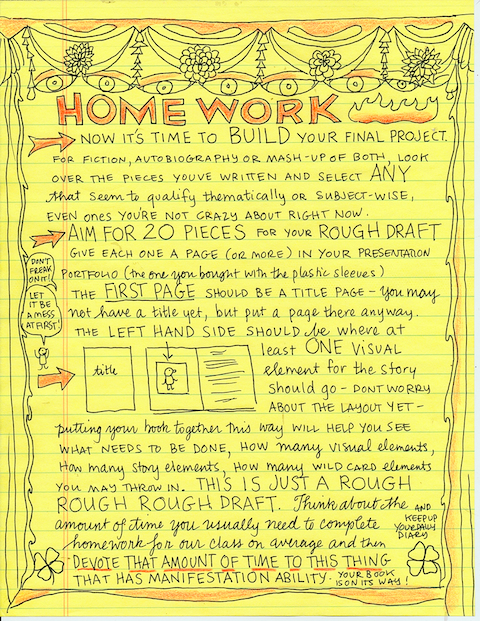 HOMEWORK
NOW IT'S TIME TO BUILD YOUR FINAL PROJECT.
FOR FICTION, AUTOBIOGRAPHY OR MASH-UP OF BOTH, LOOK
OVER THE PIECES YOU'VE WRITTEN AND SELECT ANY
that seem to qualify thematically or SUBJECT-WISE,
EVEN ONES YOU'RE NOT CRAZY ABOUT RIGHT NOW.
AIM FOR 20 PIECES FOR YOUR ROUGH DRAFT
GIVE EACH ONE A PAGE (OR MORE) IN YOUR PRESENTATION
PORTFOLIO (the one you bought with the plastic sleeves)
DON'T
FREAK
ON IT!
THE FIRST PAGE SHOULD BE A TITLE PAGE - you may
not have a title yet, but put a page there anyway.
LET
IT BE
A MESS
AT FIRST!
THE LEFT HAND SIDE SHOULD be where at
title
least ONE VISUAL
element for the story
should go - DONT WORRY
ABOUT THE LAYOUT YET -
putting your book together this way WILL HELP YOU SEE
WHAT NEEDS TO BE DONE, HOW many VISUAL elements,
How many story elements, HOW many WILD CARD elements
YOU MAY THROW IN. THIS IS JUST A ROUGH
ROUGH ROUGH DRAFT. Think about the
amount of time you usually need to complete
homework for our class on average and then
AND
KEEP UP
YOUR DAILY
DIARY
DEVOTE THAT AMOUNT OF TIME TO THIS THING
THAT HAS MANIFESTATION ABILITY. YOUR BOOK
IS ON ITS WAY!